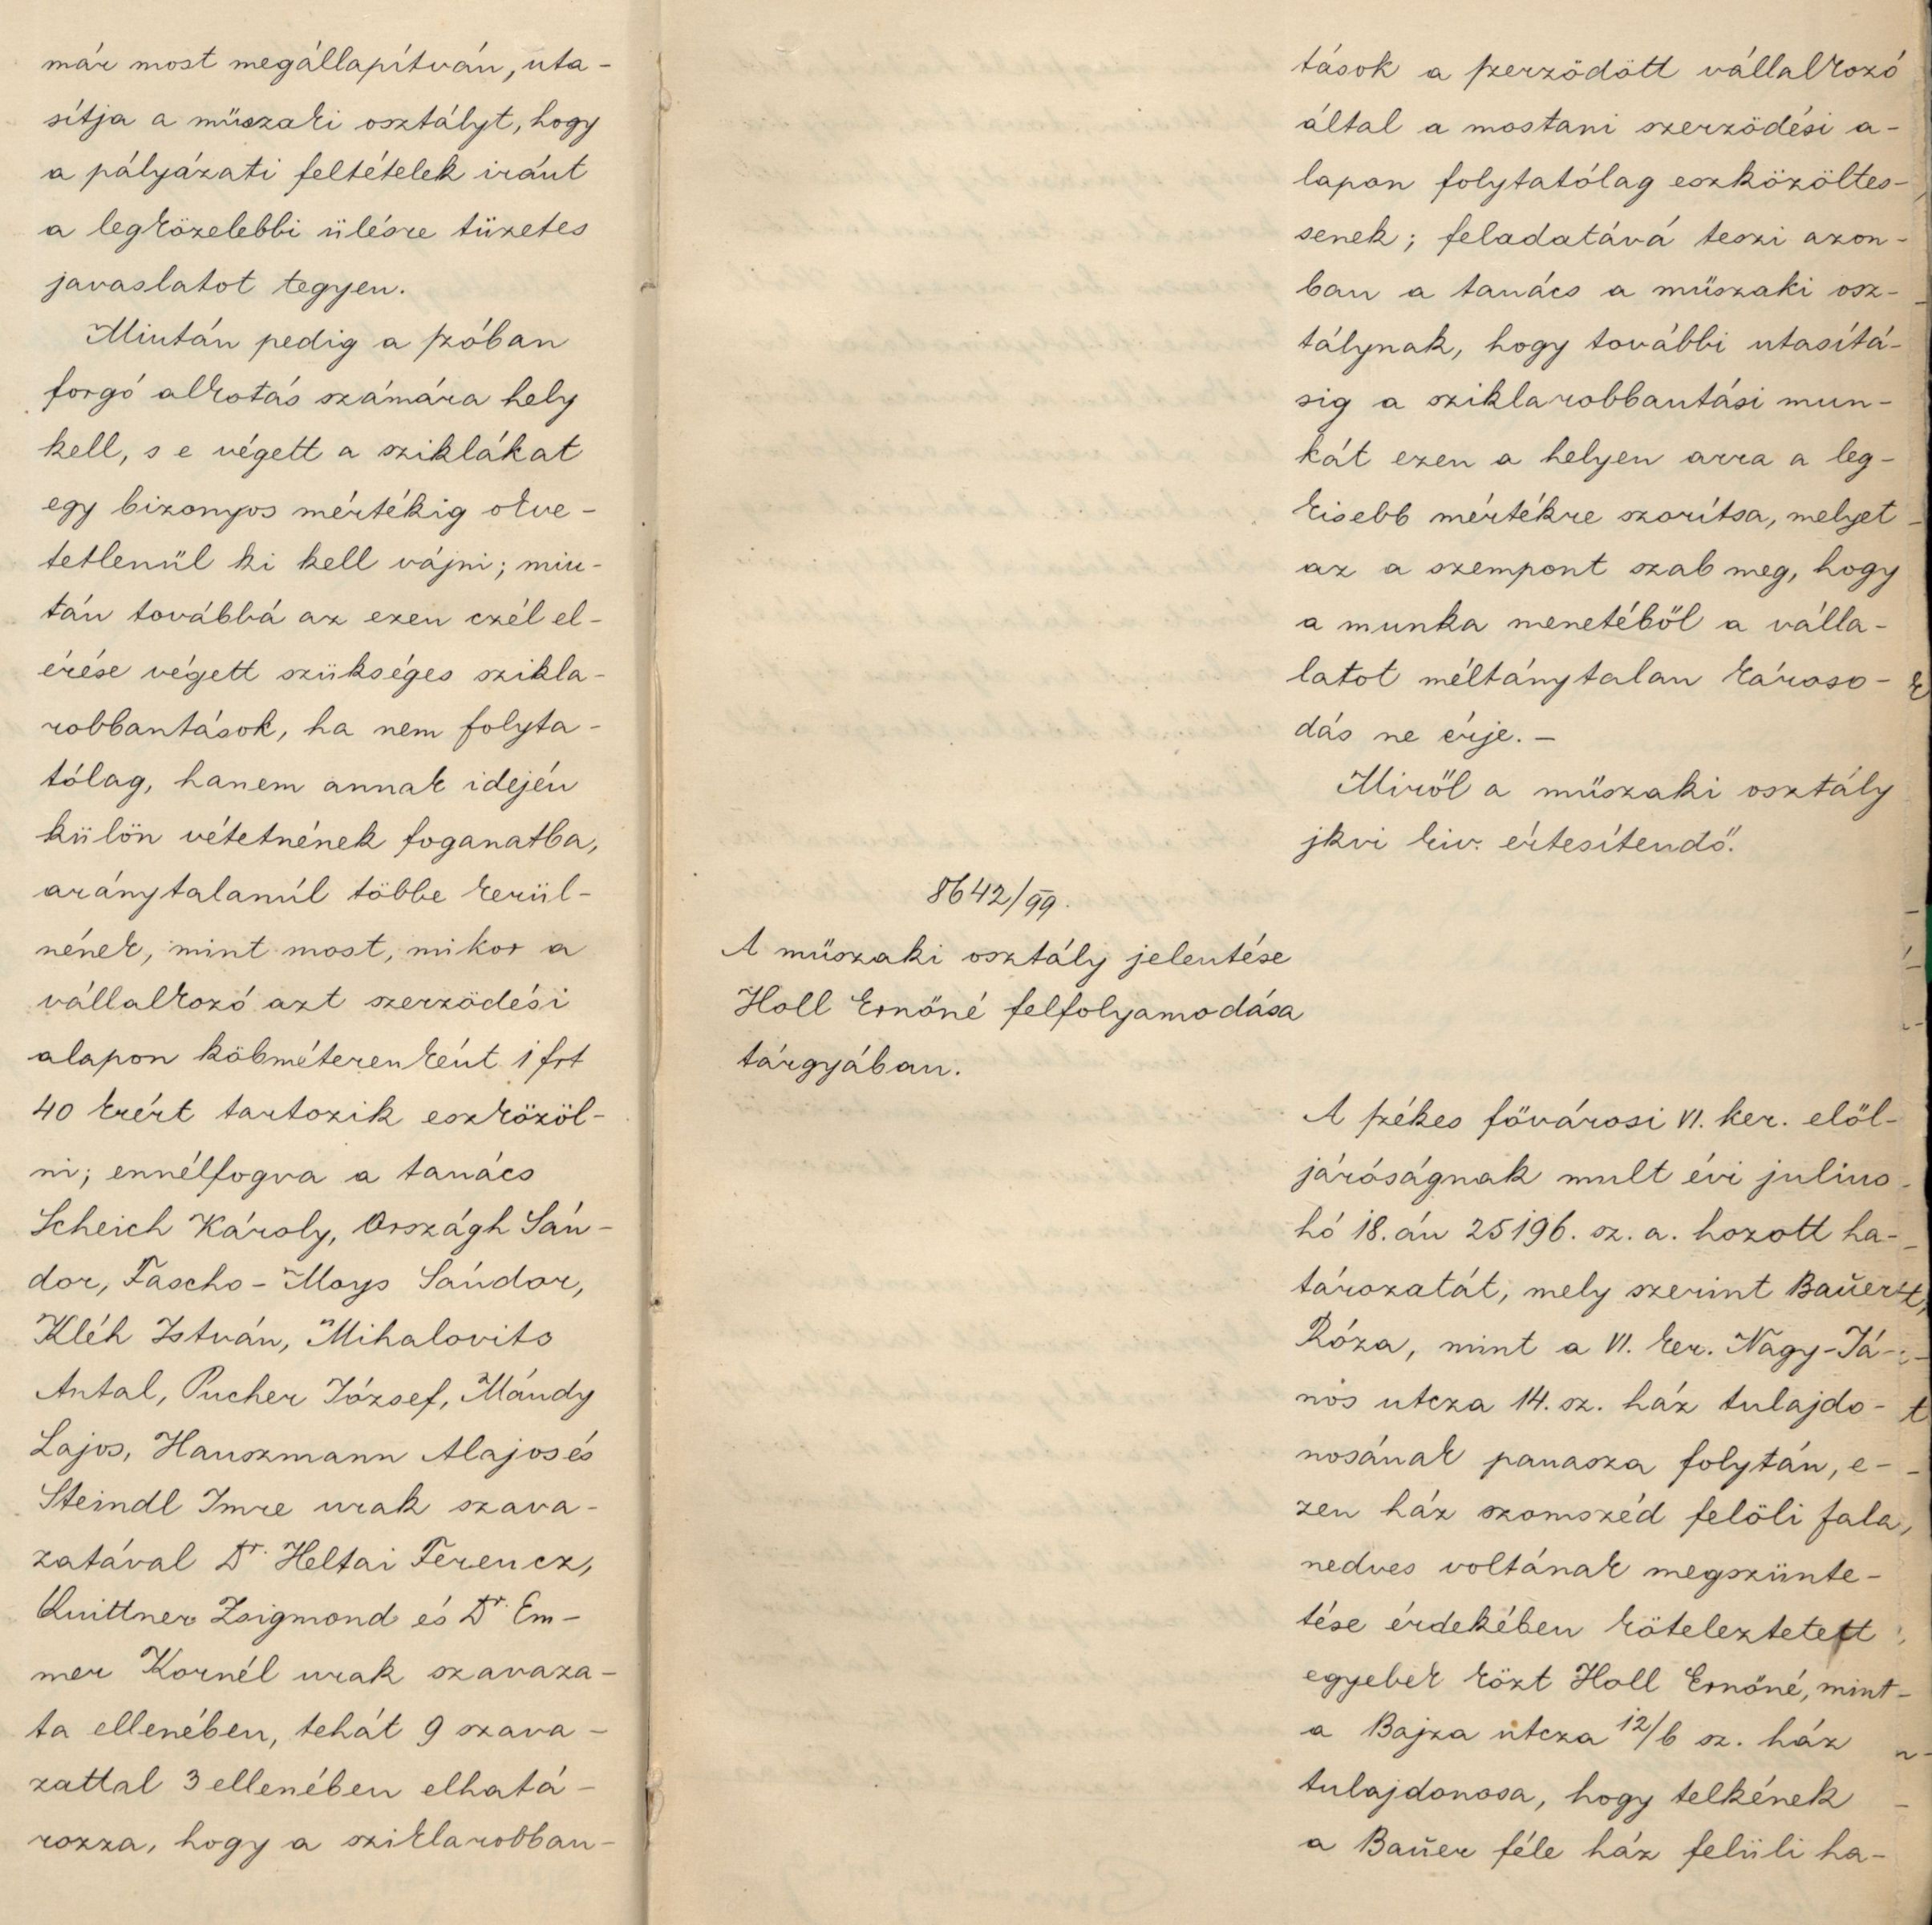 már most megállapítván, uta-
sítja a műszaki osztályt, hogy
a pályázati feltételek iránt
a legközelebbi ülésre tüzetes
javaslatot tegyen.
Miután pedig a szóban
forgó alkotás számára hely
kell, s e végett a sziklákat
egy bizonyos mértékig okve-
tetlenül ki kell vájni; miu-
tán továbbá az ezen czél el-
érése végett szükséges szikla-
robbantások, ha nem folyta-
tólag, hanem annak idején
külön vétetnének foganatba,
aránytalanúl többe kerül-
nének, mint most, mikor a
vállalkozó azt szerződési
alapon köbméterenként 1 frt
40 krért tartozik eszközöl-
ni; ennélfogva a tanács
Scheich Károly, Országh Sán-
dor, Fascho-Moys Sándor,
Kléh István, Mihalovits
Antal, Pucher József, Mándy
Lajos, Hauszmann Alajos és
Steindl Imre urak szava-
zatával Dr. Heltai Ferencz,
Quittner Zsigmond és Dr. Em-
mer Kornél urak szavaza-
ta ellenében, tehát 9 szava-
zattal 3 ellenében elhatá-
rozza, hogy a sziklarobban-
tások a szerződött vállalkozó
által a mostani szerződési a-
lapon folytatólag eszközöltes-
senek; feladatává teszi azon-
ban a tanács a műszaki osz-
tálynak, hogy további utasítá-
sig a sziklarobbantási mun-
kát ezen a helyen arra a leg-
kisebb mértékre szorítsa, melyet
az a szempont szab meg, hogy
a munka menetéből a válla-
latot méltánytalan károso-
dás ne érje. –
Miről a műszaki osztály
jkvi kiv. értesítendő.
8642/99.
A műszaki osztály jelentése
Holl Ernőné felfolyamodása
tárgyában.
A székes fővárosi VI. ker. elől-
járóságnak mult évi julius
hó 18.án 25196. sz. a. hozott ha-
tározatát, mely szerint Bauer
Róza, mint a VI. ker. Nagy-Já-
nos utcza 14. sz. ház tulajdo-
nosának panasza folytán, e-
zen ház szomszéd felöli fala,
nedves voltának megszünte-
tése érdekében köteleztetett
egyebek közt Holl Ernőné, mint
a Bajza utcza 12/b sz. ház
tulajdonosa, hogy telkének
a Bauer féle ház felüli ha-